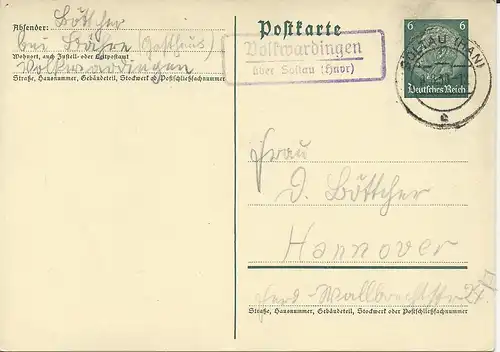 Absender: Böttcher
bei Stühre (Gasthaus)
Wohnort, auch Zustell- oder Leitpostamt
Volkwardingen
Straße, Hausnummer, Gebäudeteil, Stockwerk od. Postschließfachnummer
Postkarte
Volkwardingen
über Soltau (Hnvr)
6 6
Deutsches Reich
SOLTAU (HAN)
e
Frau
D. Böttcher
Hannover
Ferd-Wallbrechtstr 24 II
Straße, Hausnummer, Gebäudeteil, Stockwerk oder Postschließfachnummer